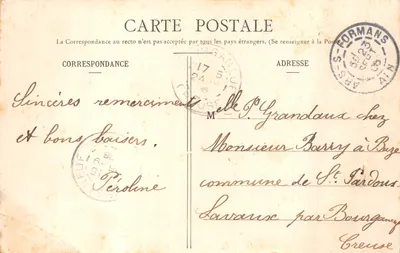 CARTE POSTALE
La Correspondance au recto n'est pas acceptée par tous les pays étrangers. (Se renseigner à la Poste
CORRESPONDANCE
ADRESSE
ARS-S-FORMANS
AIN
Sincères remerciements
et bons baisers.
Péroline
Melle P. Grandaux chez
Monsieur Barry à Buze
commune de St Pardoux
Lavaux par Bourganeuf
Creuse